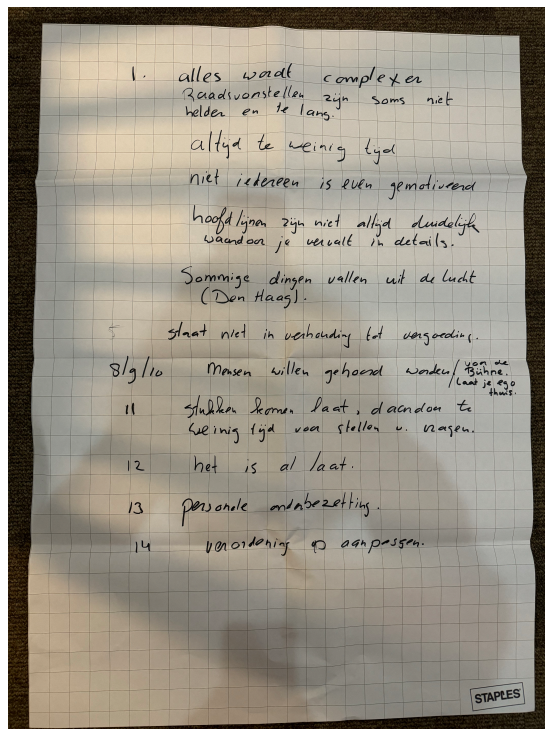 1. alles wordt complexer
Raadsvorstellen zijn soms niet
helder en te lang.
altijd te weinig tijd
niet iedereen is even gemotiveerd
hoofdlijnen zijn niet altijd duidelijk
waardoor je vervalt in details.
Sommige dingen vallen uit de lucht
(Den Haag).
5 staat niet in verhouding tot vergoeding.
8/9/10 Mensen willen gehoord worden / voor de
Bühne.
Laat je ego
thuis.
11 stukken komen laat, daardoor te
weinig tijd voor stellen v. vragen.
12 het is al laat.
13 personele onderbezetting.
14 verordening op aanpassen.
STAPLES